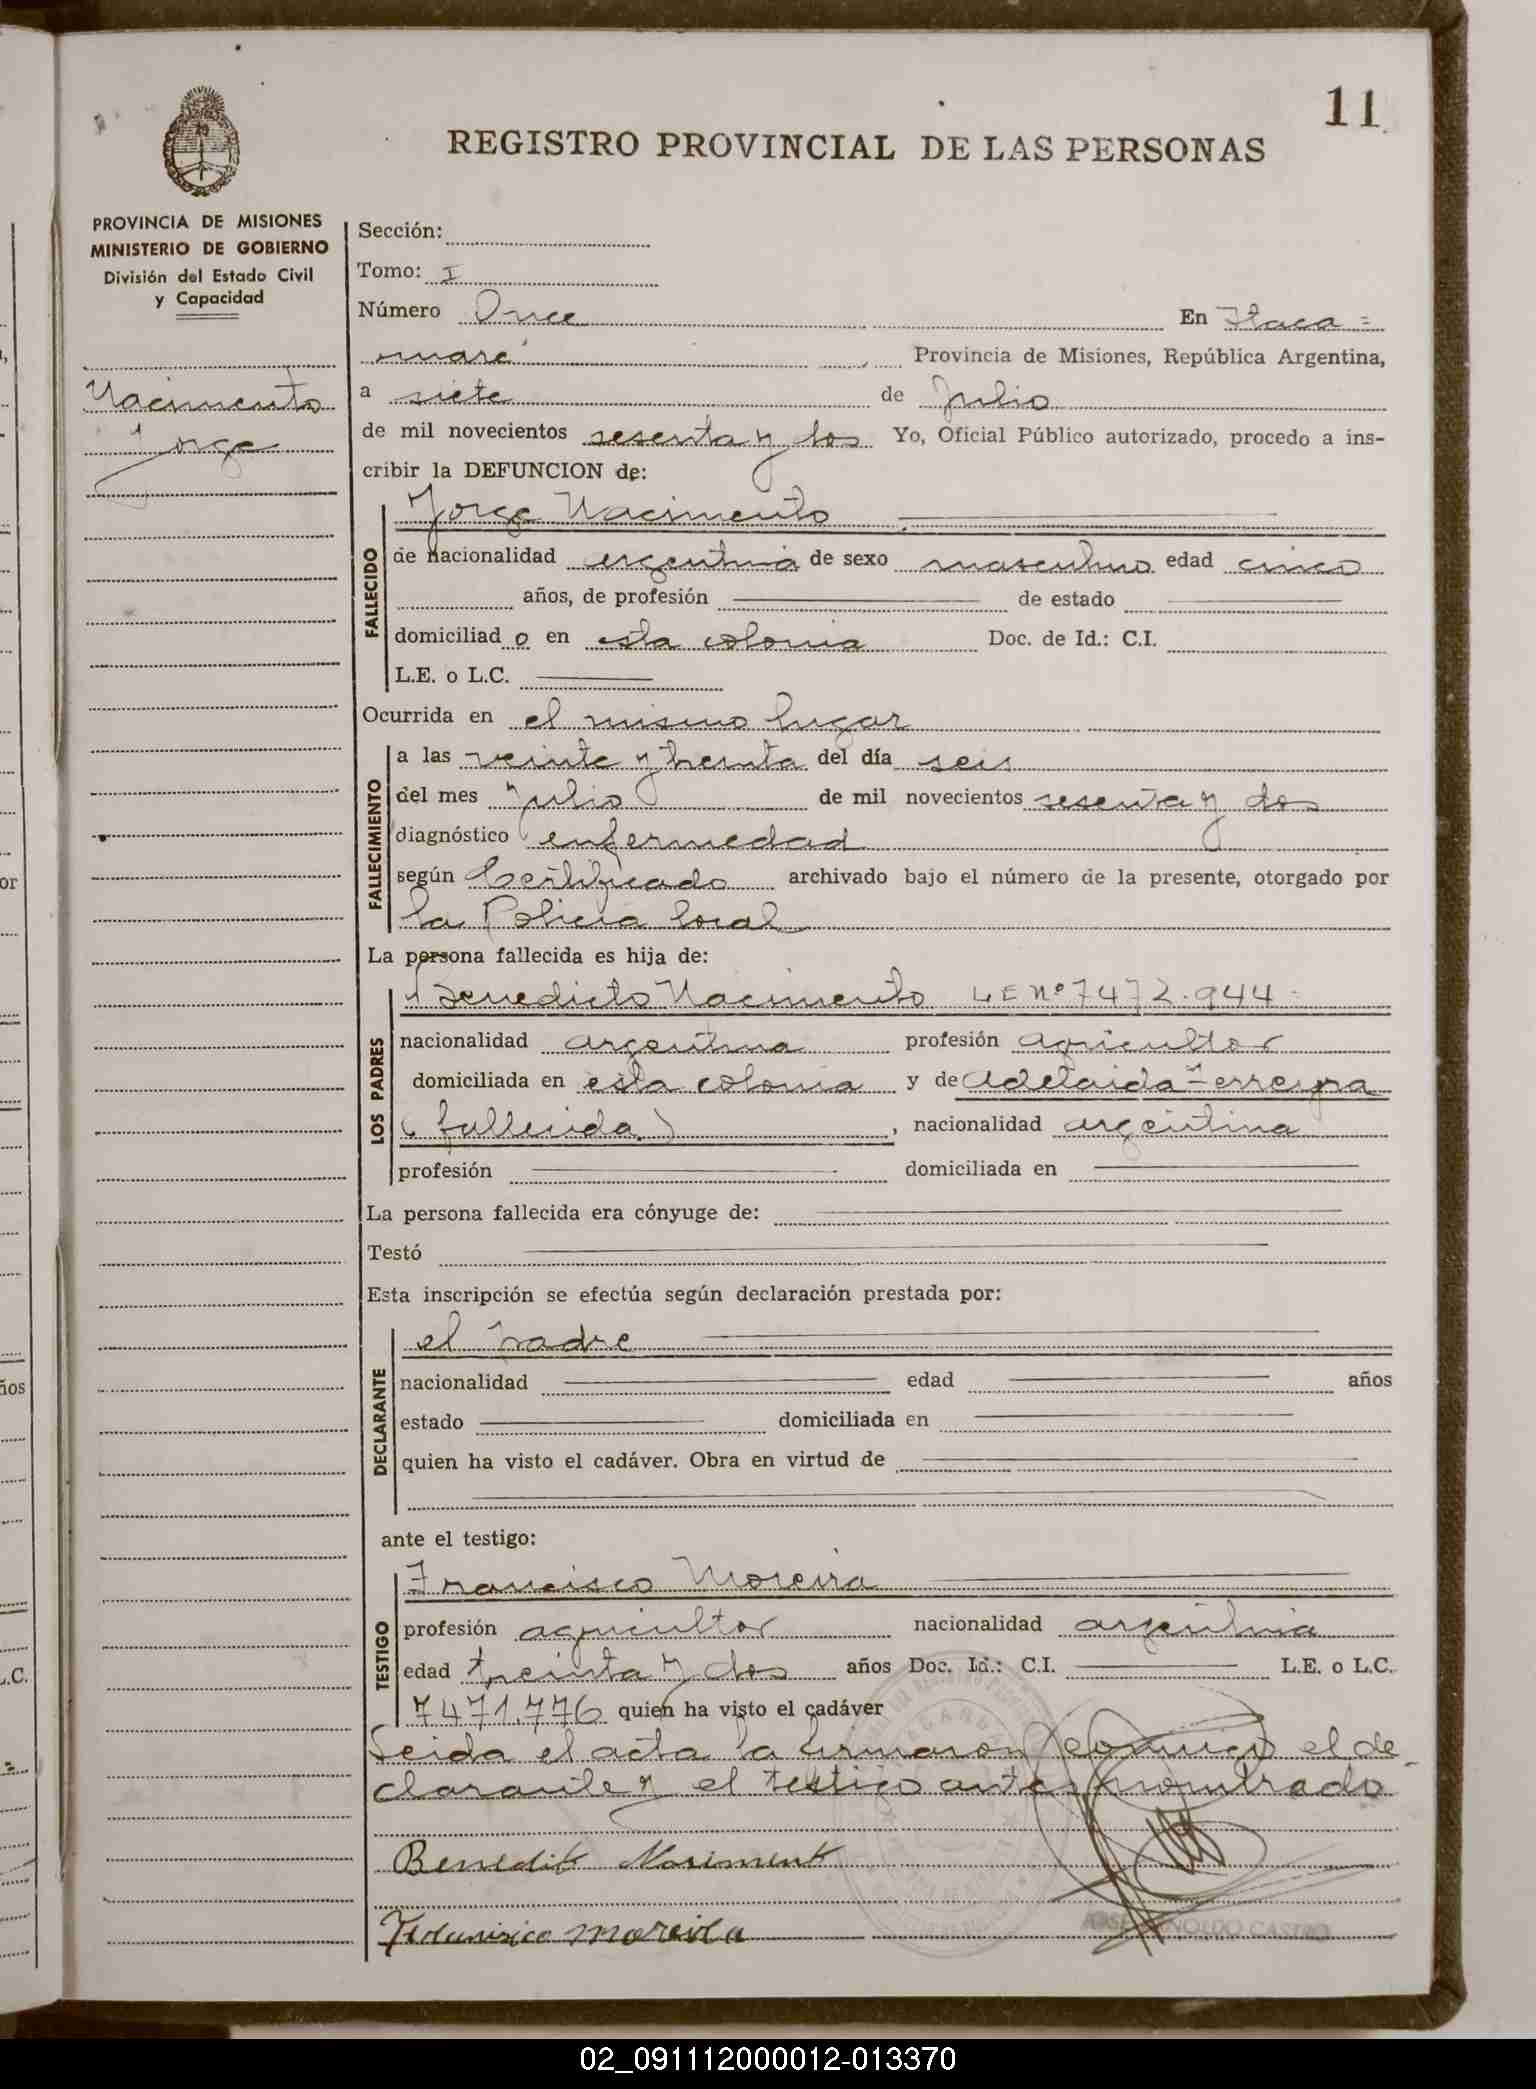 11
REGISTRO PROVINCIAL DE LAS PERSONAS
PROVINCIA DE MISIONES
MINISTERIO DE GOBIERNO
División del Estado Civil
y Capacidad
Nacimento
Jorge
Sección:
Tomo: I
Número Once En Itaca=
ruaré Provincia de Misiones, República Argentina,
a siete de Julio
de mil novecientos sesenta y dos Yo, Oficial Público autorizado, procedo a ins-
cribir la DEFUNCION de:
FALLECIDO
Jorge Nacimento
de nacionalidad argentina de sexo masculino edad cinco
años, de profesión de estado
domiciliad o en esta colonia Doc. de Id.: C.I.
L.E. o L.C.
Ocurrida en el mismo lugar
FALLECIMIENTO
a las veinte y treinta del día seis
del mes Julio de mil novecientos sesenta y dos
diagnóstico enfermedad
según Certificado archivado bajo el número de la presente, otorgado por
la Policia local
La persona fallecida es hija de:
LOS PADRES
Benedicto Nacimento LE nº 7472.944
nacionalidad argentina profesión agricultor
domiciliada en esta colonia y de Adelaida Ferreyra
(fallecida) , nacionalidad argentina
profesión domiciliada en
La persona fallecida era cónyuge de:
Testó
Esta inscripción se efectúa según declaración prestada por:
DECLARANTE
el padre
nacionalidad edad años
estado domiciliada en
quien ha visto el cadáver. Obra en virtud de
ante el testigo:
TESTIGO
Francisco Moreira
profesión agricultor nacionalidad argentina
edad treinta y dos años Doc. Id.: C.I. L.E. o L.C.
7471.776 quien ha visto el cadáver
Leida el acta la firmaron conmigo el de-
clarante y el testigo antes nombrado
Benedito Nasimento
Moreira
CASTRO
02_091112000012-013370